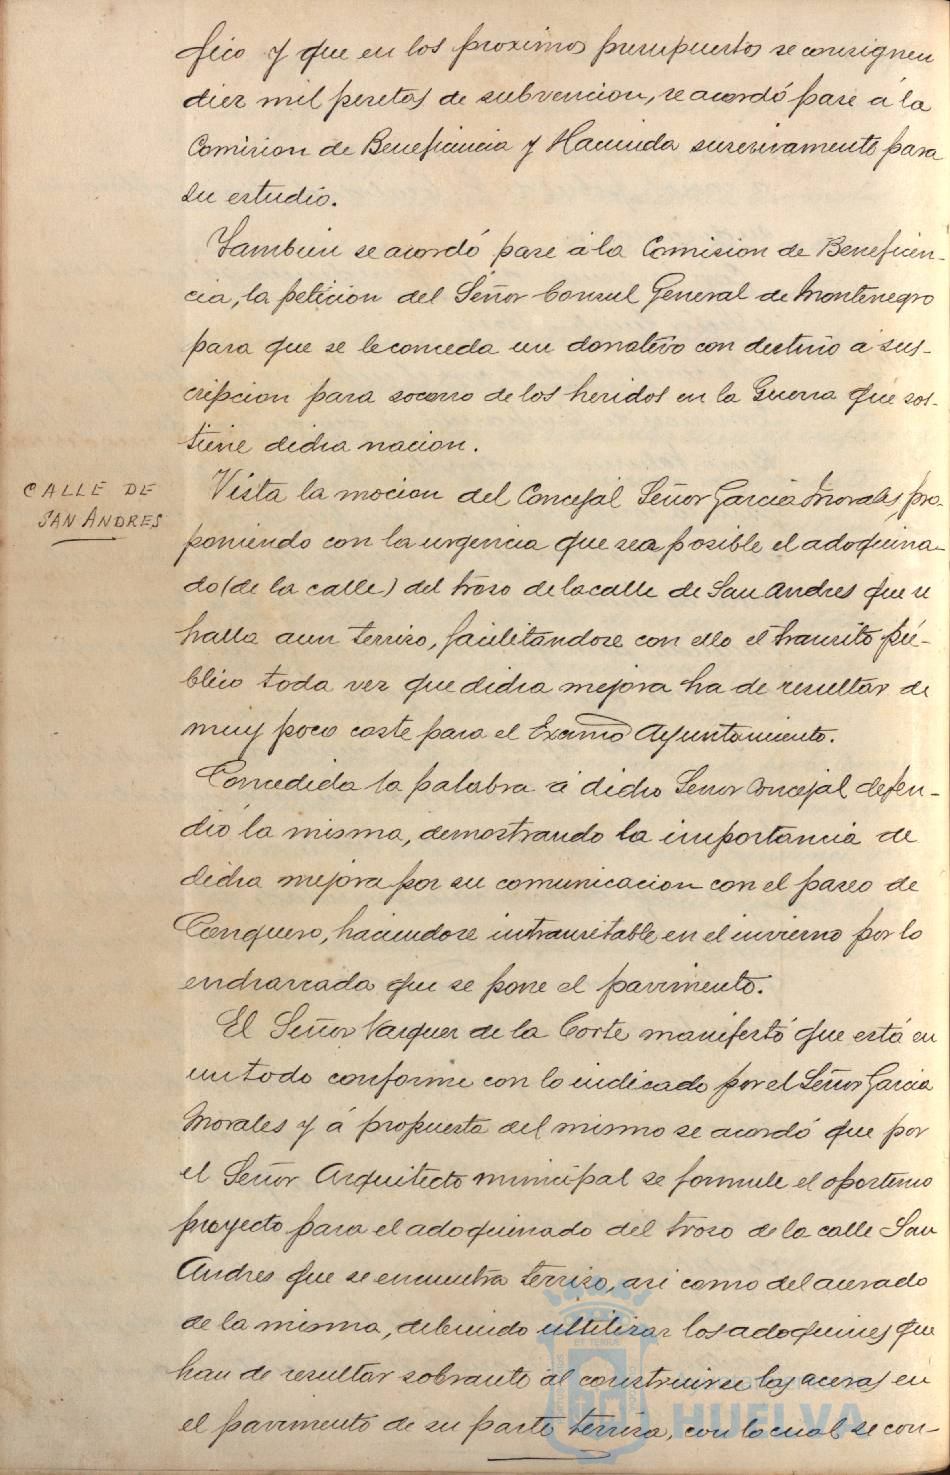 fico y que en los proximos presupuestos se consignen
diez mil pesetas de subvencion, se acordó pase á la
Comision de Beneficencia y Hacienda sucesivamente para
su estudio.
Tambien se acordó pase á la Comision de Beneficen-
cia, la peticion del Señor Consul General de Montenegro
para que se le conceda un donativo con destino á sus-
cripcion para socorro de los heridos en la Guerra que sos-
tiene dicha nacion.
CALLE DE
SAN ANDRES
Vista la mocion del Concejal Señor Garcia Morales, pro-
poniendo con la urgencia que sea posible el adoquina-
do (de la calle) del troso de la calle de San Andres que se
halla aun terriso, facilitandose con ello el transito pú-
blico toda vez que dicha mejora ha de resultar de
muy poco coste para el Excmo Ayuntamiento.
Concedida la palabra á dicho Señor Concejal defen-
dió la misma, demostrando la importancia de
dicha mejora por su comunicacion con el paseo de
Conquero, haciendose intransitable en el invierno por lo
encharcada que se pone el pavimento.
El Señor Vazquez de la Corte manifestó que está en
un todo conforme con lo indicado por el Señor Garcia
Morales y á propuesta del mismo se acordó que por
el Señor Arquitecto municipal se formule el oportuno
proyecto para el adoquinado del troso de la calle San
Andres que se encuentra terriso, asi como del acerado
de la misma, debiendo ultilisar los adoquines que
han de resultar sobrante al construirse las aceras en
el pavimento de su parte terrisa, con lo cual se con-
HUELVA